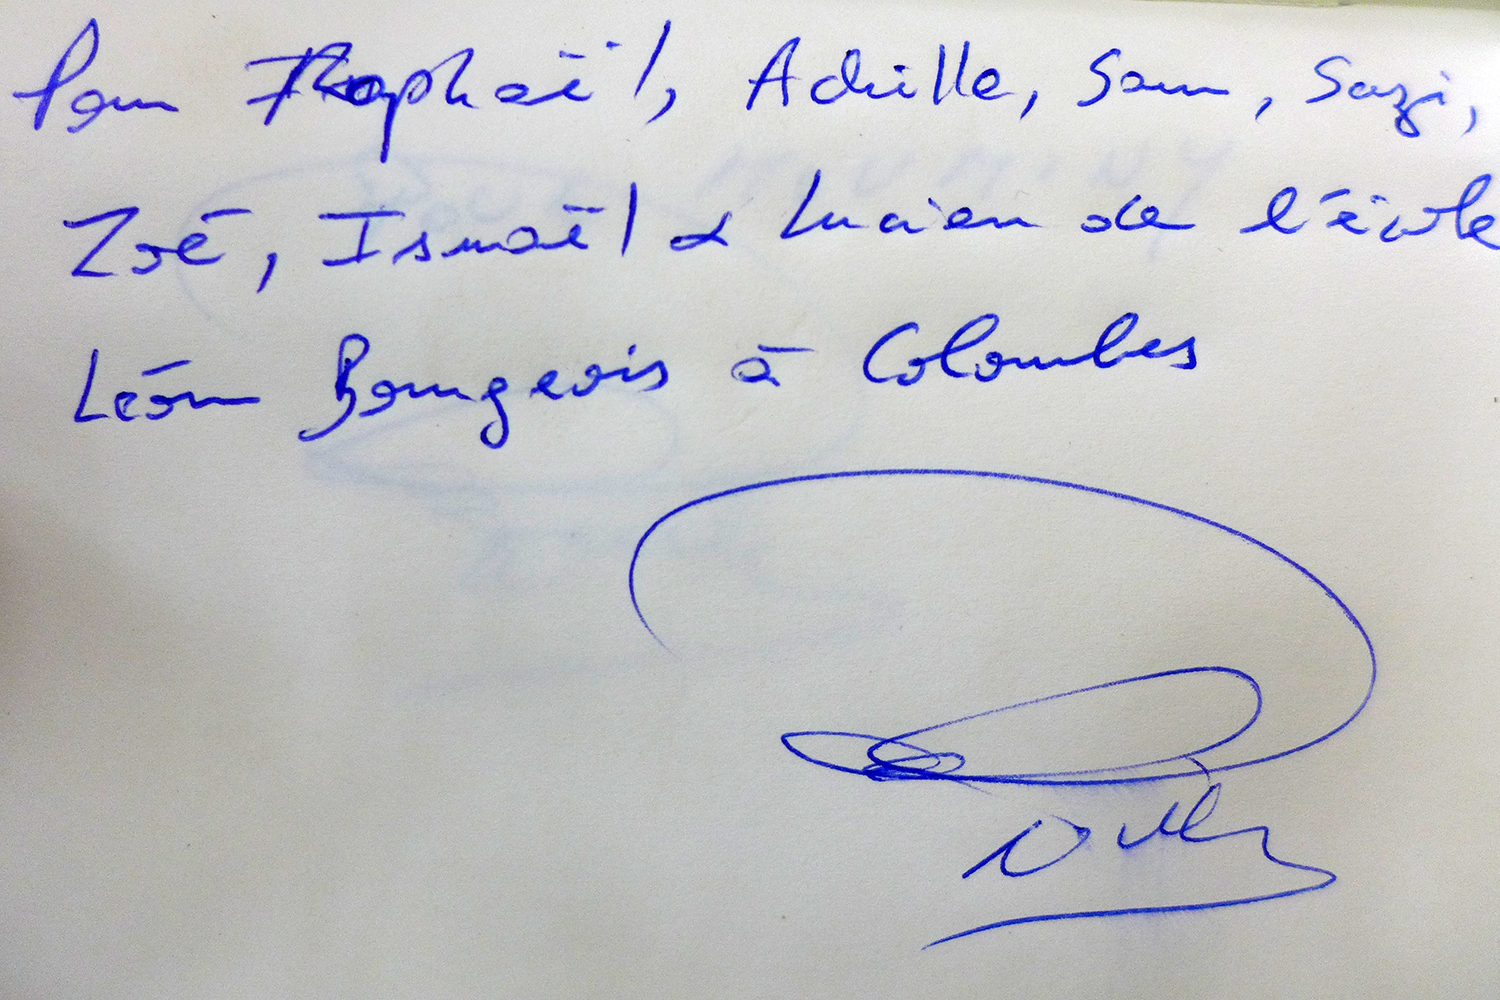 Pour Raphaël, Achille, Sam, Sazi,
Zoé, Ismaël & Lucien de l'école
Léon Bourgeois à Colombes